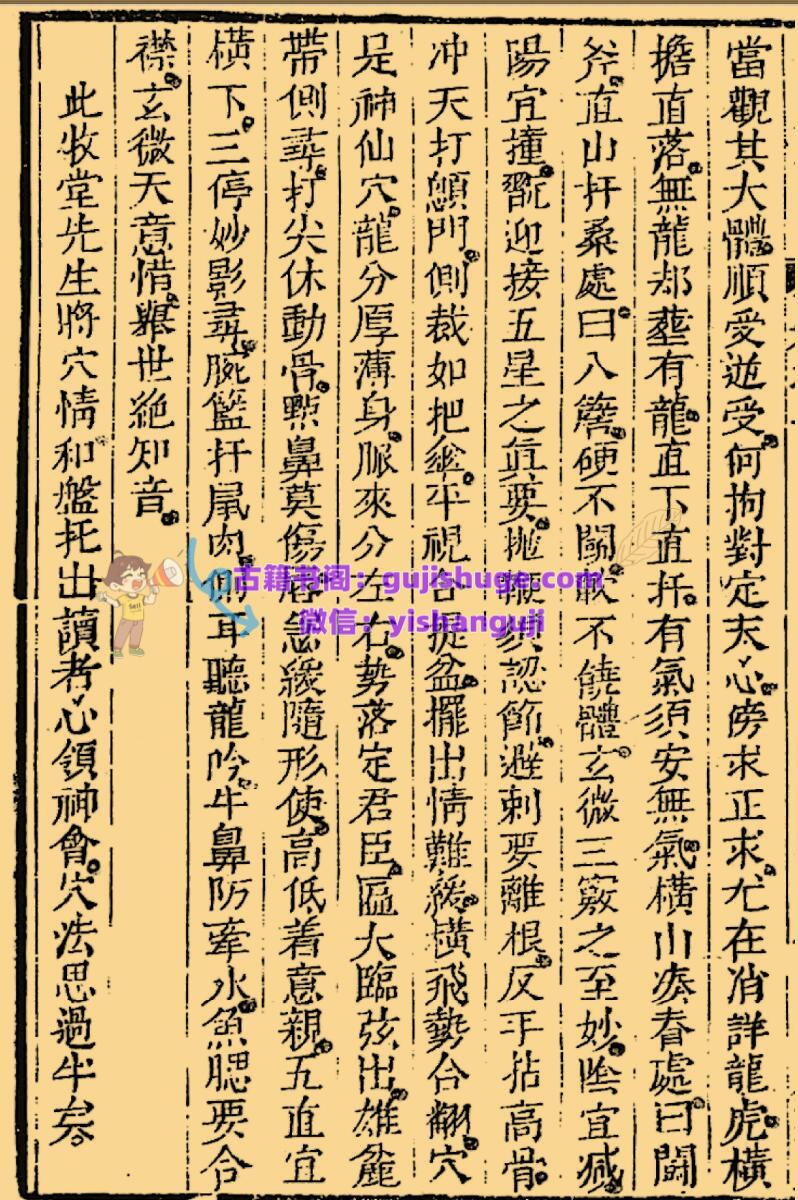 當觀其大體順受逆受何拘對定天心傍求正求尤在消詳龍虎橫
擔直落無龍却塟有龍直下直扦有氣須安無氣橫山湊脊處曰闘
斧直山扦桑處曰八簷硬不闘軟不饒體玄微三竅之至妙陰宜减
陽宜撞翫迎接五星之眞要抛鞭須認節避刺要離根反手拈高骨
冲天打顖門側裁如把傘平視合提盆擺出情難緩橫飛勢合翻穴
是神仙穴龍分厚薄身脈來分左右勢落定君臣區大臨弦出雄麄
帶側尋打尖休動骨點鼻莫傷唇急緩隨形使高低着意親五直宜
橫下三停妙影尋腕籃扦鼠肉側耳聽龍吟牛鼻防牽水魚腮要合
襟玄微天意惜舉世絶知音
此牧堂先生將穴情和盤托出讀者心領神會穴法思過半矣
古籍书阁：gujishuge.com
微信：yishanguji